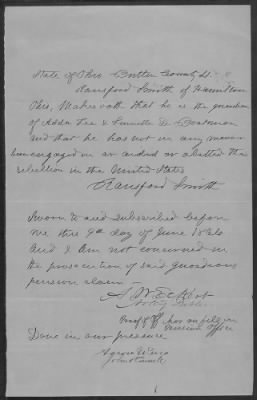 State of Ohio Butler County ss.
Ransford Smith of Hamilton
Ohio, Makes oath that he is the guardian
of Adda Lee & D. Boatman
and that he has not in any manner
engaged in or aided or abetted the
rebellion in the United States
Ransford Smith
Sworn to and subscribed before
me this 9th day of June
and I am not concerned in
the prosecution of said guardians
pension claim
Notary Public
Proof has on file in
Pension Office
Done in our presence